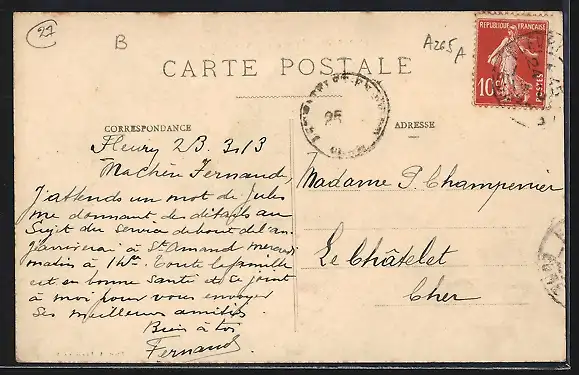 27
B
A265A
CARTE POSTALE
REPUBLIQUE FRANÇAISE
10c
POSTES
25
CORRESPONDANCE
ADRESSE
Fleury 2B. 3.13
Ma chère Fernande,
J'attends un mot de Jules
me donnant des détails au
Sujet du service du bout de l'an.
J'arriverai à St Amand mercredi
matin à 1h. Toute la famille
est en bonne santé et se joint
à moi pour vous envoyer
ses meilleurs amitiés.
Bien à toi
Fernand
Madame P. Champenier
Le Châtelet
Cher